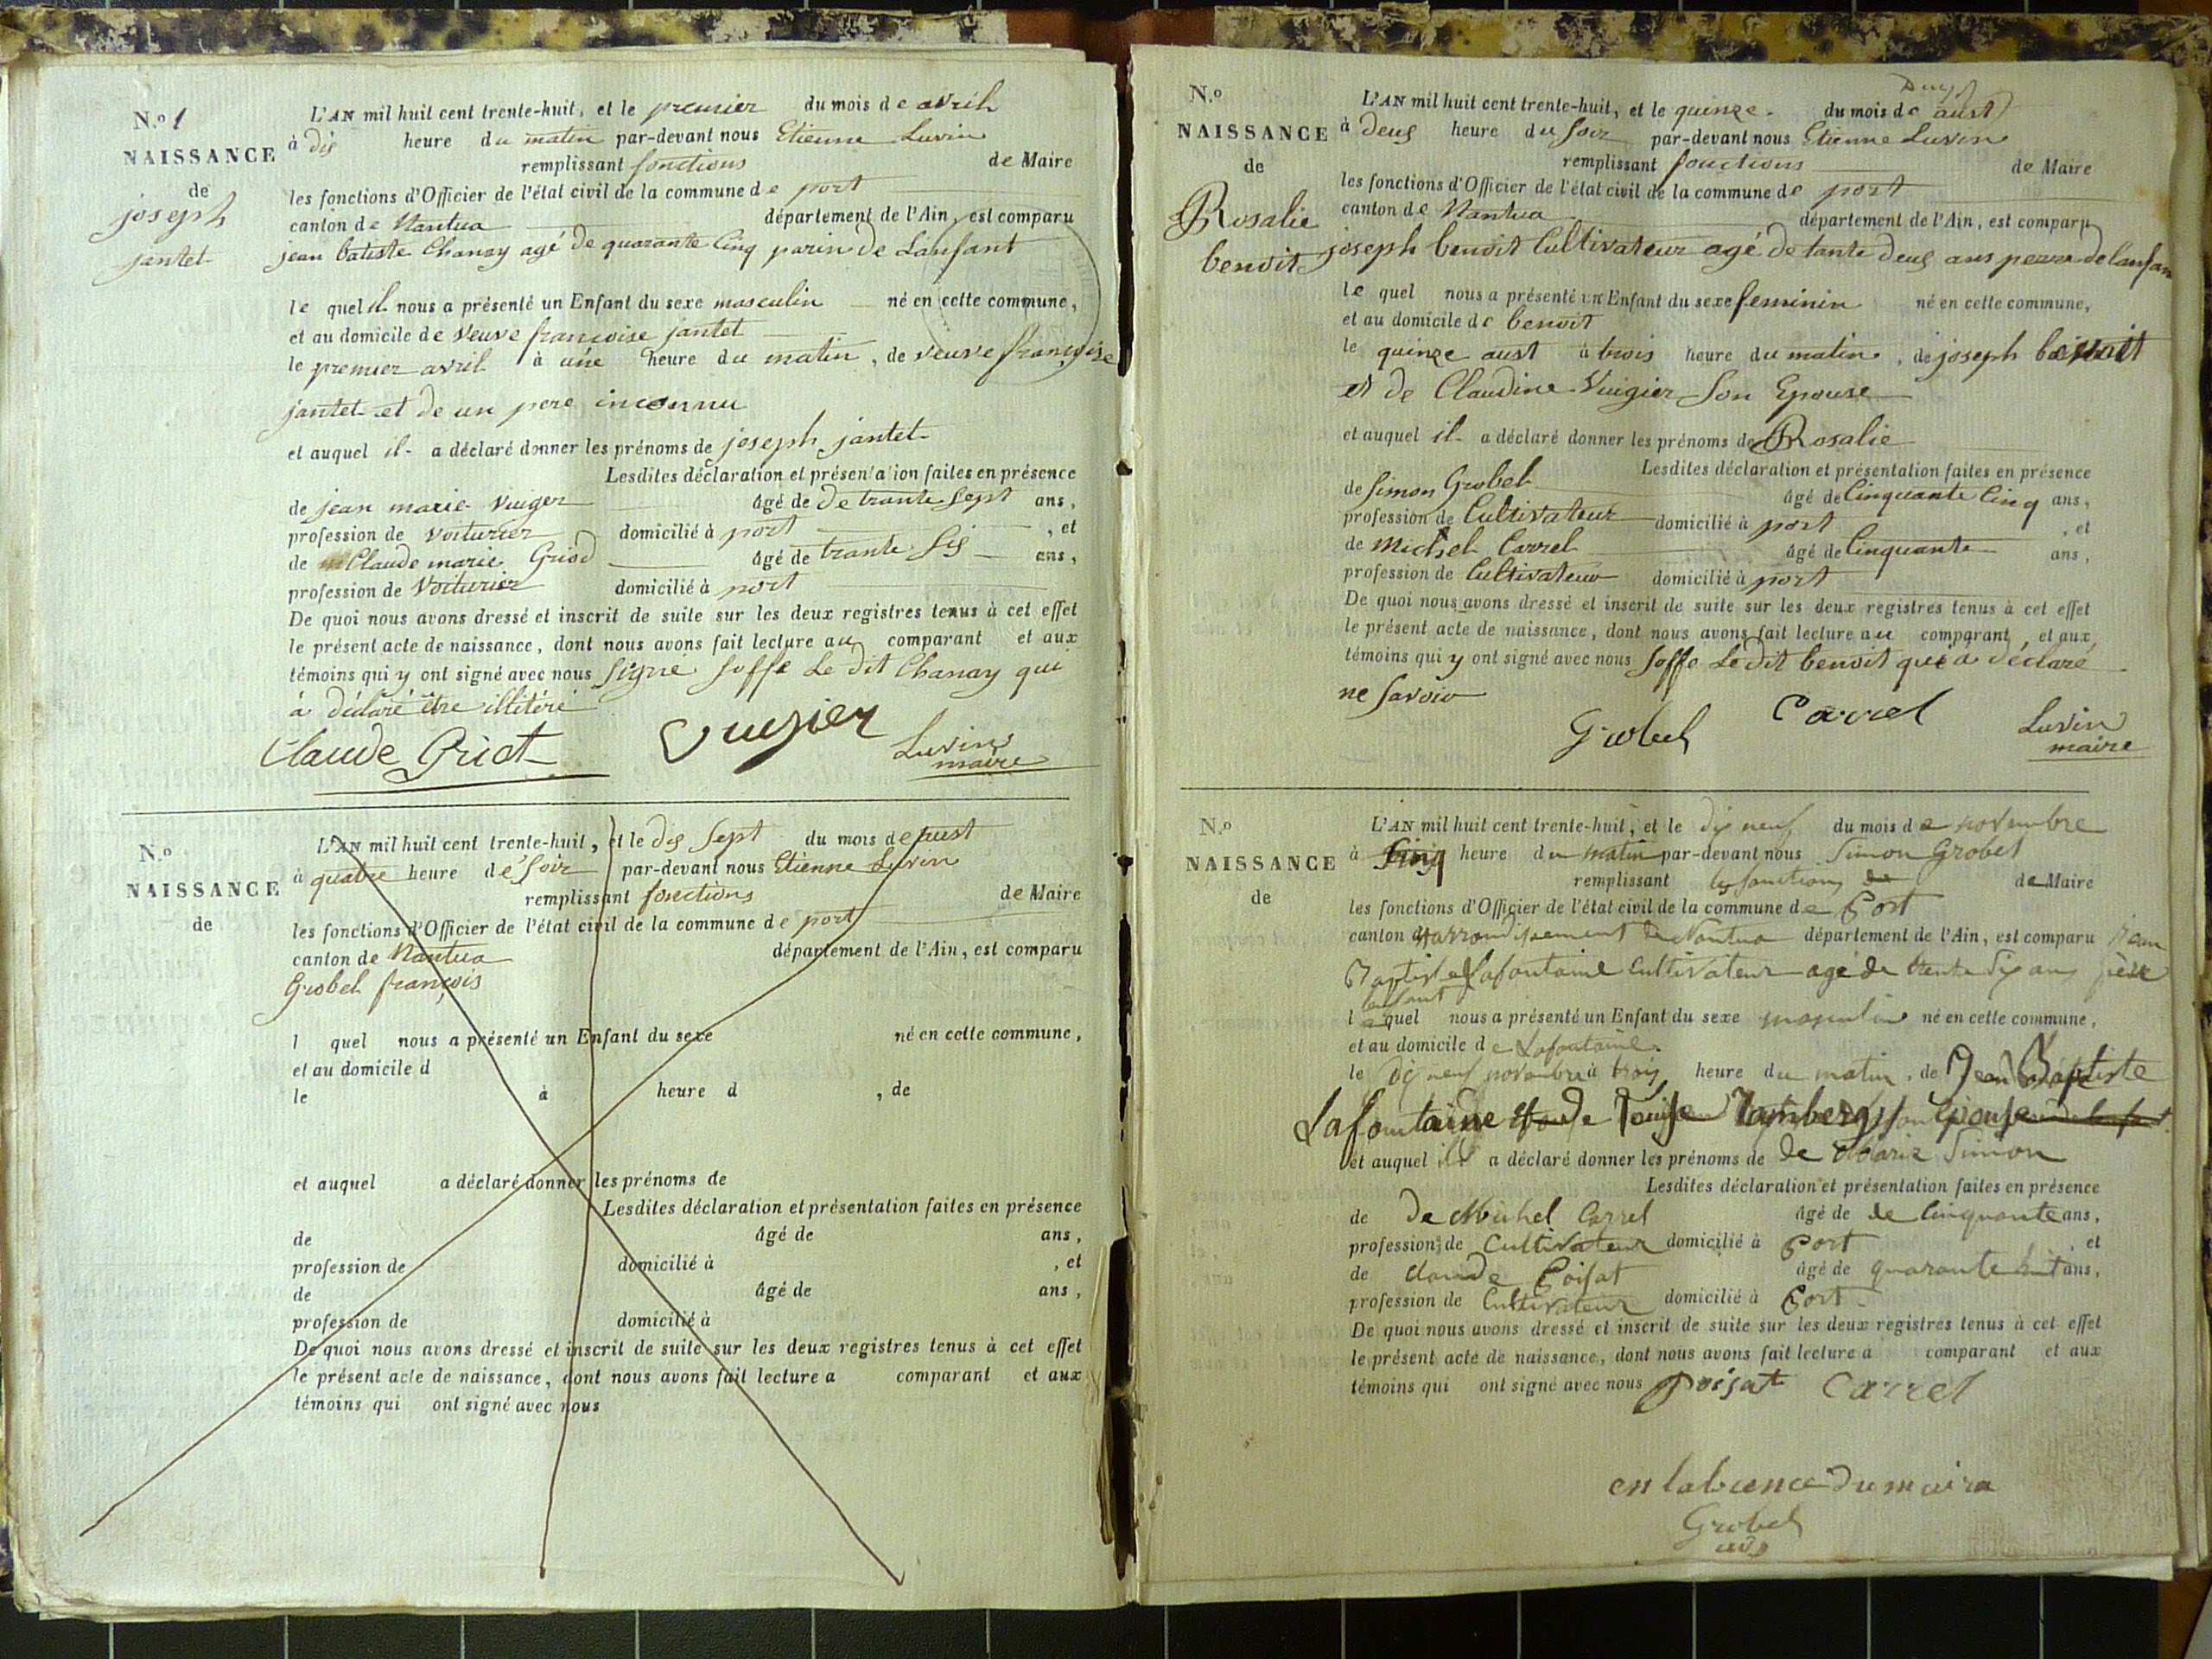 N.º 1
NAISSANCE
de
joseph
jantet
L'AN mil huit cent trente-huit, et le premier du mois de avril
à dis heure du matin par-devant nous Etienne Luvin
remplissant fonctions de Maire
les fonctions d'Officier de l'état civil de la commune de port
canton de Nantua département de l'Ain, est comparu
jean batiste Chanay agé de quarante Cinq parin de Lanfant
le quel il nous a présenté un Enfant du sexe masculin né en cette commune,
et au domicile de veuve françoise jantet
le premier avril à une heure du matin, de veuve françoise
jantet et de un pere inconnu
et auquel il a déclaré donner les prénoms de joseph jantet
Lesdites déclaration et présentation faites en présence
de jean marie Vuger âgé de de trante Sept ans,
profession de Voiturier domicilié à port, et
de Claude marie Griod âgé de trante Sis ans,
profession de Voiturier domicilié à port
De quoi nous avons dressé et inscrit de suite sur les deux registres tenus à cet effet
le présent acte de naissance, dont nous avons fait lecture au comparant et aux
témoins qui y ont signé avec nous Signe Soffe Le dit Chanay qui
à déclaré être illitéré
Claude Griot Vugier Luvin
maire
N.º
NAISSANCE
de
L'AN mil huit cent trente-huit, et le dis Sept du mois de aust
à quatre heure de Soir par-devant nous Etienne Luvin
remplissant fonctions de Maire
les fonctions d'Officier de l'état civil de la commune de port
canton de Nantua département de l'Ain, est comparu
Grobel françois
l quel nous a présenté un Enfant du sexe né en cette commune,
et au domicile d
le à heure d , de
et auquel a déclaré donner les prénoms de
Lesdites déclaration et présentation faites en présence
de âgé de ans,
profession de domicilié à , et
de âgé de ans,
profession de domicilié à
De quoi nous avons dressé et inscrit de suite sur les deux registres tenus à cet effet
le présent acte de naissance, dont nous avons fait lecture a comparant et aux
témoins qui ont signé avec nous
N.º
NAISSANCE
de
Rosalie
benoit
L'AN mil huit cent trente-huit, et le quinze du mois de aust
à deus heure du Soir par-devant nous Etienne Luvin
remplissant fonctions de Maire
les fonctions d'Officier de l'état civil de la commune de port
canton de Nantua département de l'Ain, est comparu
joseph benoit Cultivateur agé de tante deus ans perre de lanfan
le quel nous a présenté un Enfant du sexe feminin né en cette commune,
et au domicile de benoit
le quinze aust à trois heure du matin, de joseph benoit
et de Claudine Vuigier Son Epouse
et auquel il a déclaré donner les prénoms de Rosalie
Lesdites déclaration et présentation faites en présence
de Simon Grobel âgé de Cinquante Cinq ans,
profession de Cultivateur domicilié à port, et
de Michel Carrel âgé de Cinquante ans,
profession de Cultivateur domicilié à port
De quoi nous avons dressé et inscrit de suite sur les deux registres tenus à cet effet
le présent acte de naissance, dont nous avons fait lecture au comparant, et aux
témoins qui y ont signé avec nous Soffe Le dit benoit qui à déclaré
ne Savoir
Grobel Carrel Luvin
maire
N.º
NAISSANCE
de
L'AN mil huit cent trente-huit, et le dix neuf du mois de novembre
à Cinq heure du matin par-devant nous Simon Grobel
remplissant les fonctions de de Maire
les fonctions d'Officier de l'état civil de la commune de Port
canton arrondissement de Nantua département de l'Ain, est comparu jean
Baptiste Lafontaine Cultivateur agé de trente Six ans père
lenfant
le quel nous a présenté un Enfant du sexe masculin né en cette commune,
et au domicile de Lafontaine
le dix neuf novembre à trois heure du matin, de Jean Baptiste
Lafontaine et de Louise Zamberg son épouse
et auquel il a déclaré donner les prénoms de de Marie Simon
Lesdites déclaration et présentation faites en présence
de De Michel Carrel âgé de de Cinquante ans,
profession de Cultivateur domicilié à Port et
de claude Poisat âgé de quarante huit ans,
profession de Cultivateur domicilié à Port
De quoi nous avons dressé et inscrit de suite sur les deux registres tenus à cet effet
le présent acte de naissance, dont nous avons fait lecture a comparant et aux
témoins qui ont signé avec nous Poisat Carrel
en labcence du maire
Grobel